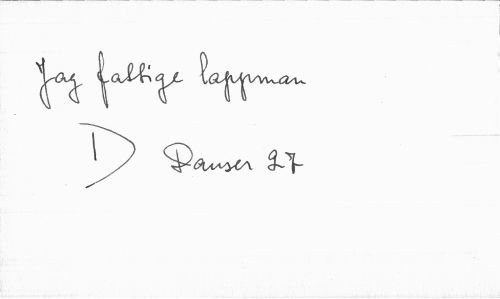 Jag fattige lappman
D Danser 27